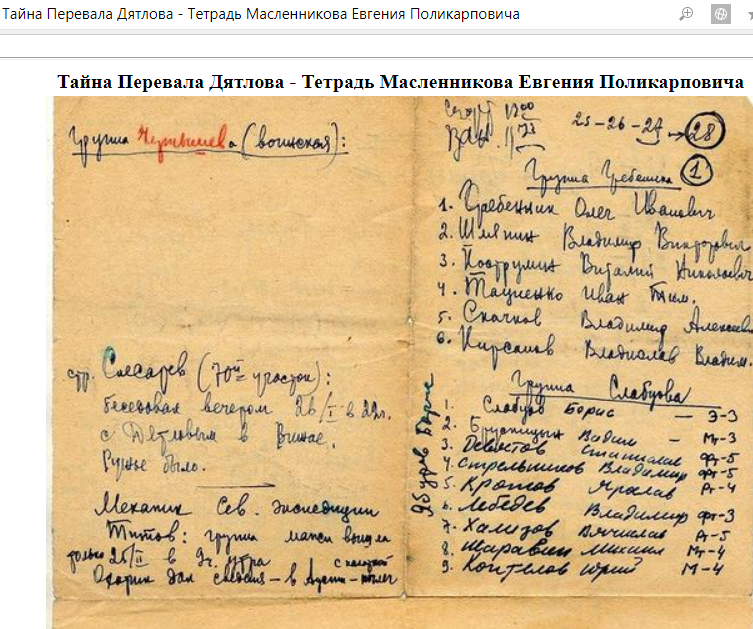 Тайна Перевала Дятлова - Тетрадь Масленникова Евгения Поликарповича
Тайна Перевала Дятлова - Тетрадь Масленникова Евгения Поликарповича
Группа Чернышева (воинская):
стр. Слесарев (70й участок):
беседовал вечером 26/I в 22ч.
с Дятловым в Вижае.
Ружье было.
Механик Сев. экспедиции
Титов: группа манси вышла
только 25/II в 9ч. утра
дал сведения - в
1700
25-26-27 → 28
Группа Гребенника 1
1. Гребенник Олег Иванович
2. Шляпин Владимир Викторович
3. Пострумин Виталий Николаевич
4. Тащиенко Иван
5. Скачков Владимир Алексееви
6. Кирсанов Владислав Владим.
Группа Слабцова
1. Слабцов Борис - Э-3
2. Брусницын Вадим - Мт-3
3. Девятов Станислав Фт-5
4. Стрельников Владимир Фт-5
5. Кротов Ярослав Рт-4
6. Лебедев Владимир Фт-3
7. Хализов Вячеслав Рт-5
8. Шаравин Михаил Мт-4
9. Коптелов Юрий М-4